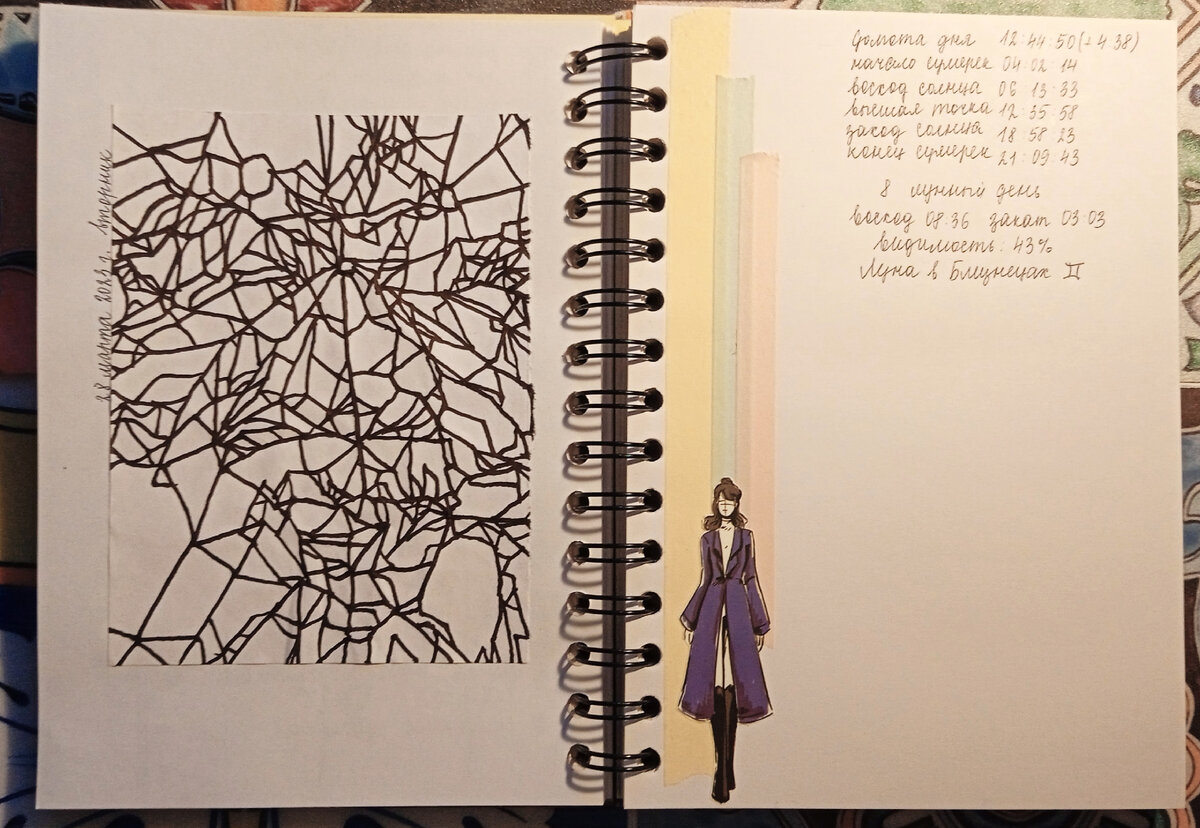 28 марта 2023 г. вторник
долгота дня 12:44:50 (+ 4:38)
начало сумерек 04:02:14
восход солнца 06 13:33
высшая точка 12:35:58
заход солнца 18:58 23
конец сумерек 21:09:43
8 лунный день
восход 08:36 закат 03:03
видимость: 43%
Луна в Близнецах ♊